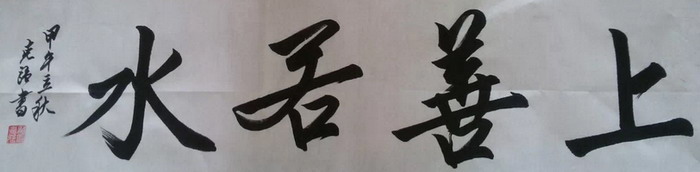 上善若水
甲午立秋
克强書